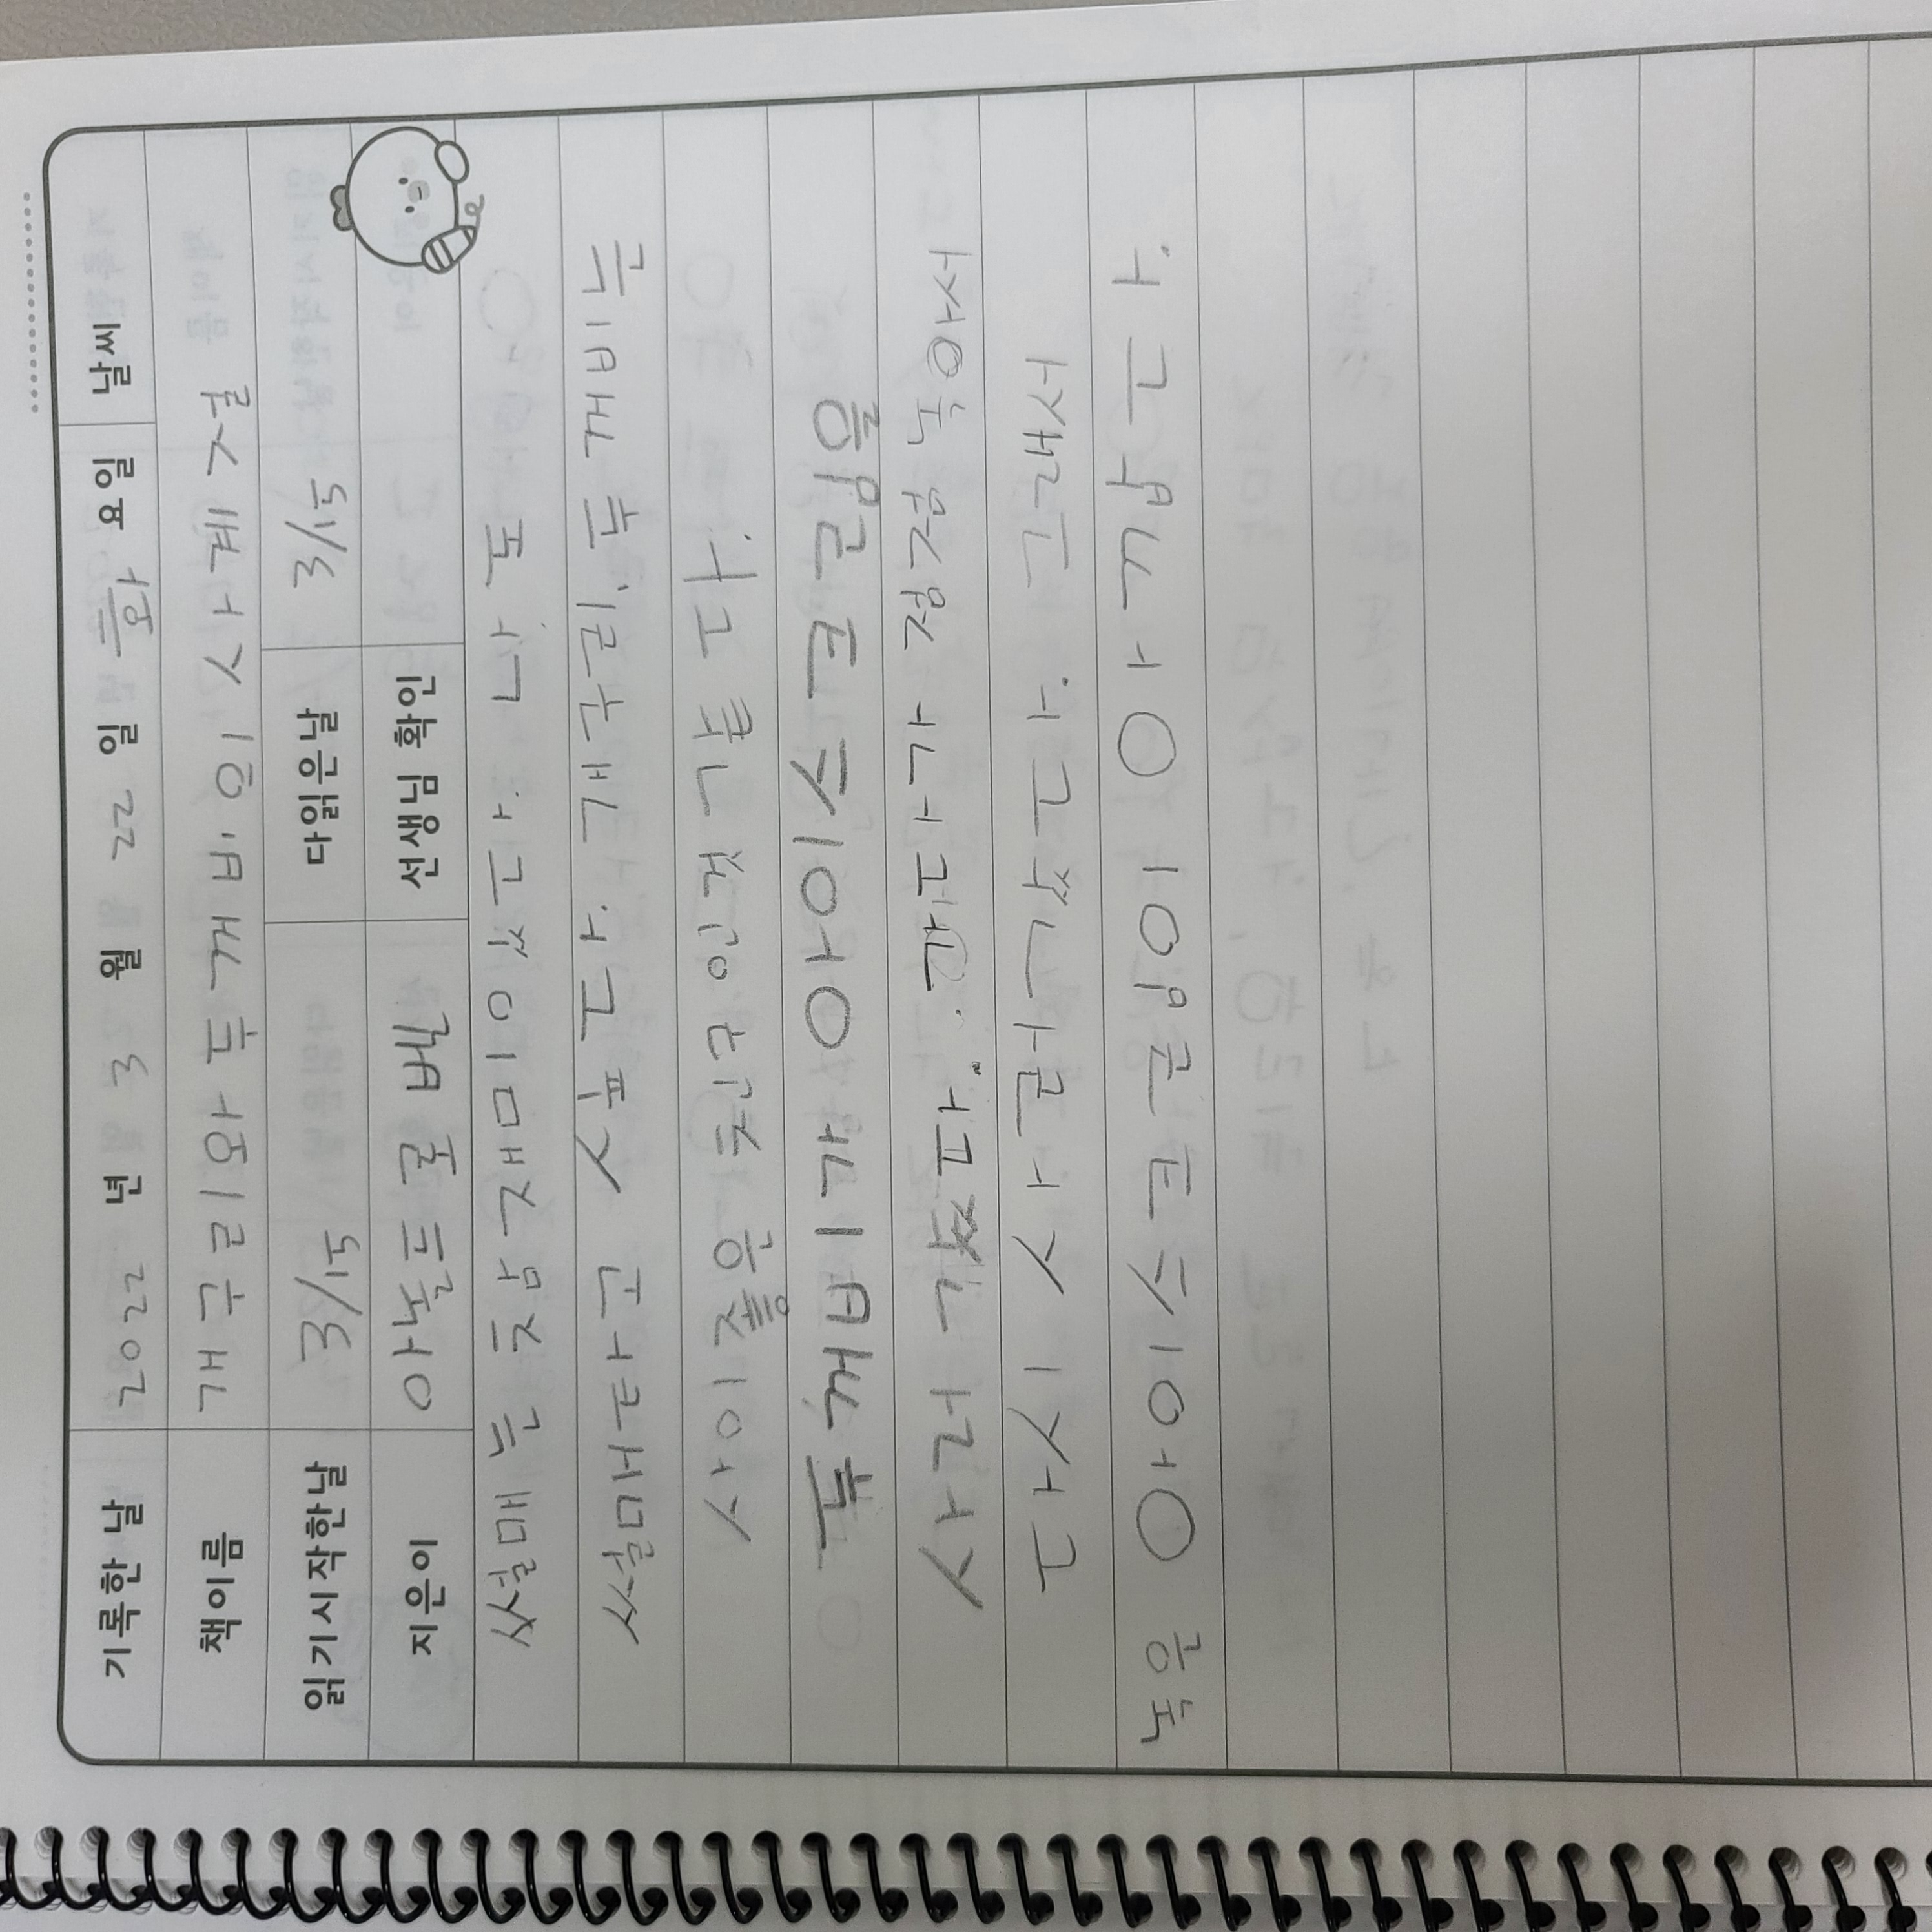 기록한 날 2022 년 3 월 22 일 화 요일 날씨
책이름 개구리와 두꺼비의 사계절
읽기시작한날 3/15 다읽은날 3/15
지은이 아놀드 로벨 선생님 확인
썰매는 참 재미있다. 나도
썰매타고 싶다. 개구리, 두꺼비는
사이좋은 친구인것 같다.
두꺼비가 아이스크림을
사러 갔다. 가다가 정정 녹아서
다시 사러갔다. 그래서
녹은 아이스크림이 아깝다.